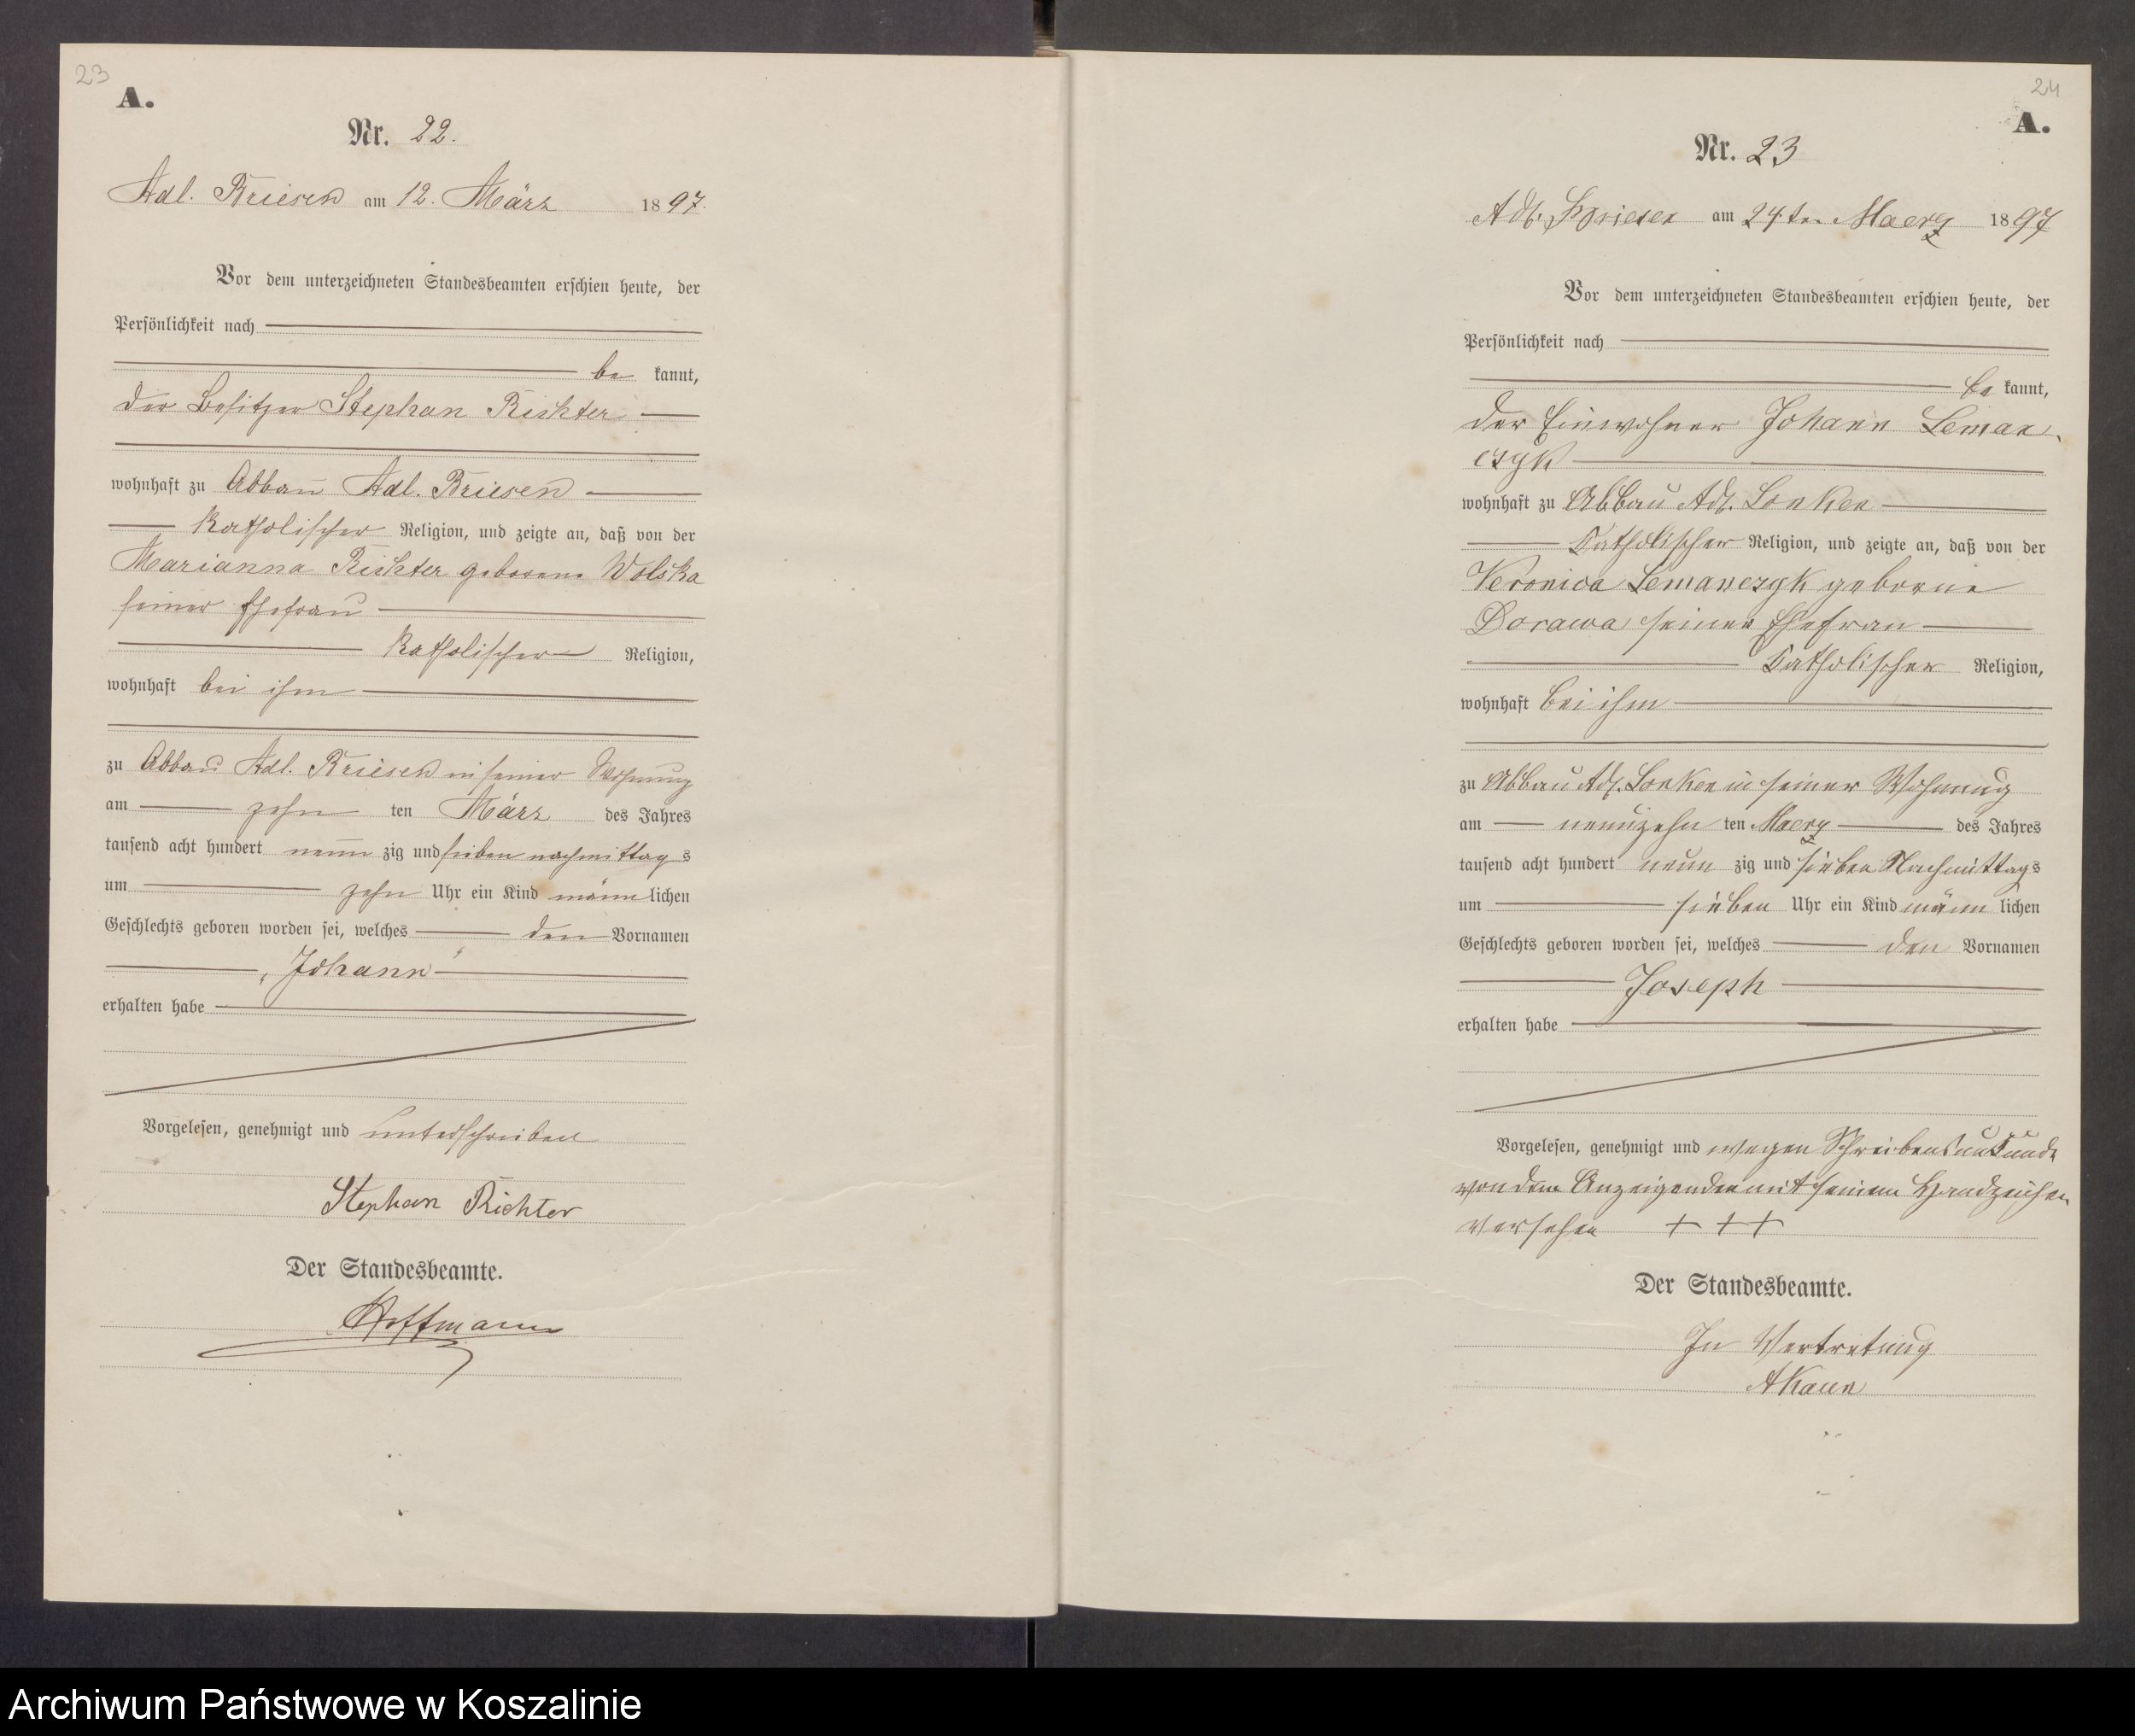 23
A.
Nr. 22.
Adl. Briesen am 12. März 1897.
Vor dem unterzeichneten Standesbeamten erschien heute, der
Persönlichkeit nach
be kannt,
der Besitzer Stephan Richter
wohnhaft zu Abbau Adl. Briesen
katholischer Religion, und zeigte an, daß von der
Marianna Richter geborene Wolska
seiner Ehefrau
katholischer Religion,
wohnhaft bei ihm
zu Abbau Adl. Briesen in seiner Wohnung
am zehn ten März des Jahres
tausend acht hundert neun zig und sieben nachmittag s
um zehn Uhr ein Kind männ lichen
Geschlechts geboren worden sei, welches den Vornamen
„Johann“
erhalten habe
Vorgelesen, genehmigt und unterschrieben
Stephan Richter
Der Standesbeamte.
Hoffmann
24
A.
Nr. 23
Adl. Briesen am 24ten Maerz 1897
Vor dem unterzeichneten Standesbeamten erschien heute, der
Persönlichkeit nach
be kannt,
der Einwohner Johann Leman-
czyk
wohnhaft zu Abbau Adl. Lonken
katholischer Religion, und zeigte an, daß von der
Veronica Lemanczyk geborene
Dorawa seiner Ehefrau
katholischer Religion,
wohnhaft bei ihm
zu Abbau Adl. Lonken in seiner Wohnung
am neunzehn ten Maerz des Jahres
tausend acht hundert neun zig und sieben Nachmittag s
um sieben Uhr ein Kind männ lichen
Geschlechts geboren worden sei, welches den Vornamen
Joseph
erhalten habe
Vorgelesen, genehmigt und wegen Schreibensunkunde
von dem Anzeigenden mit seinem Handzeichen
versehen + + +
Der Standesbeamte.
In Vertretung
Archiwum Państwowe w Koszalinie